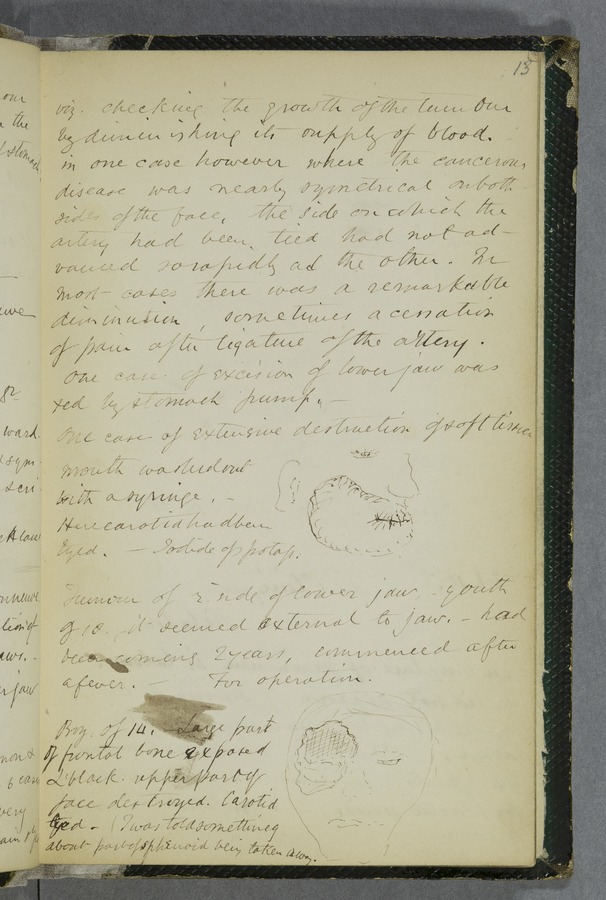 15
viz. checking the growth of the tumour
by diminishing its supply of blood.
in one case however where the cancerous
disease was nearly symetrical on both
sides of the face, the side on which the
artery had been tied had not ad-
vanced so rapidly as the other. In
most cases there was a remarkable
diminution, sometimes a cessation
of pain after ligature of the artery.
One case of excision of lower jaw was
fed by stomach pump. -
One case of extensive destruction of soft tissues
mouth washed out
with a syringe. -
Here carotid had been
tyed. - Iodide of potass.
Tumour of r side of lower jaw - youth
of 18. it seemed external to jaw. - had
been coming 2 years, commenced after
a fever. - For operation.
Boy of 14. Large part
of frontal bone exposed
& black. upper part of
face destroyed. Carotid
tyed - I was told something
about part of sphenoid being taken away.